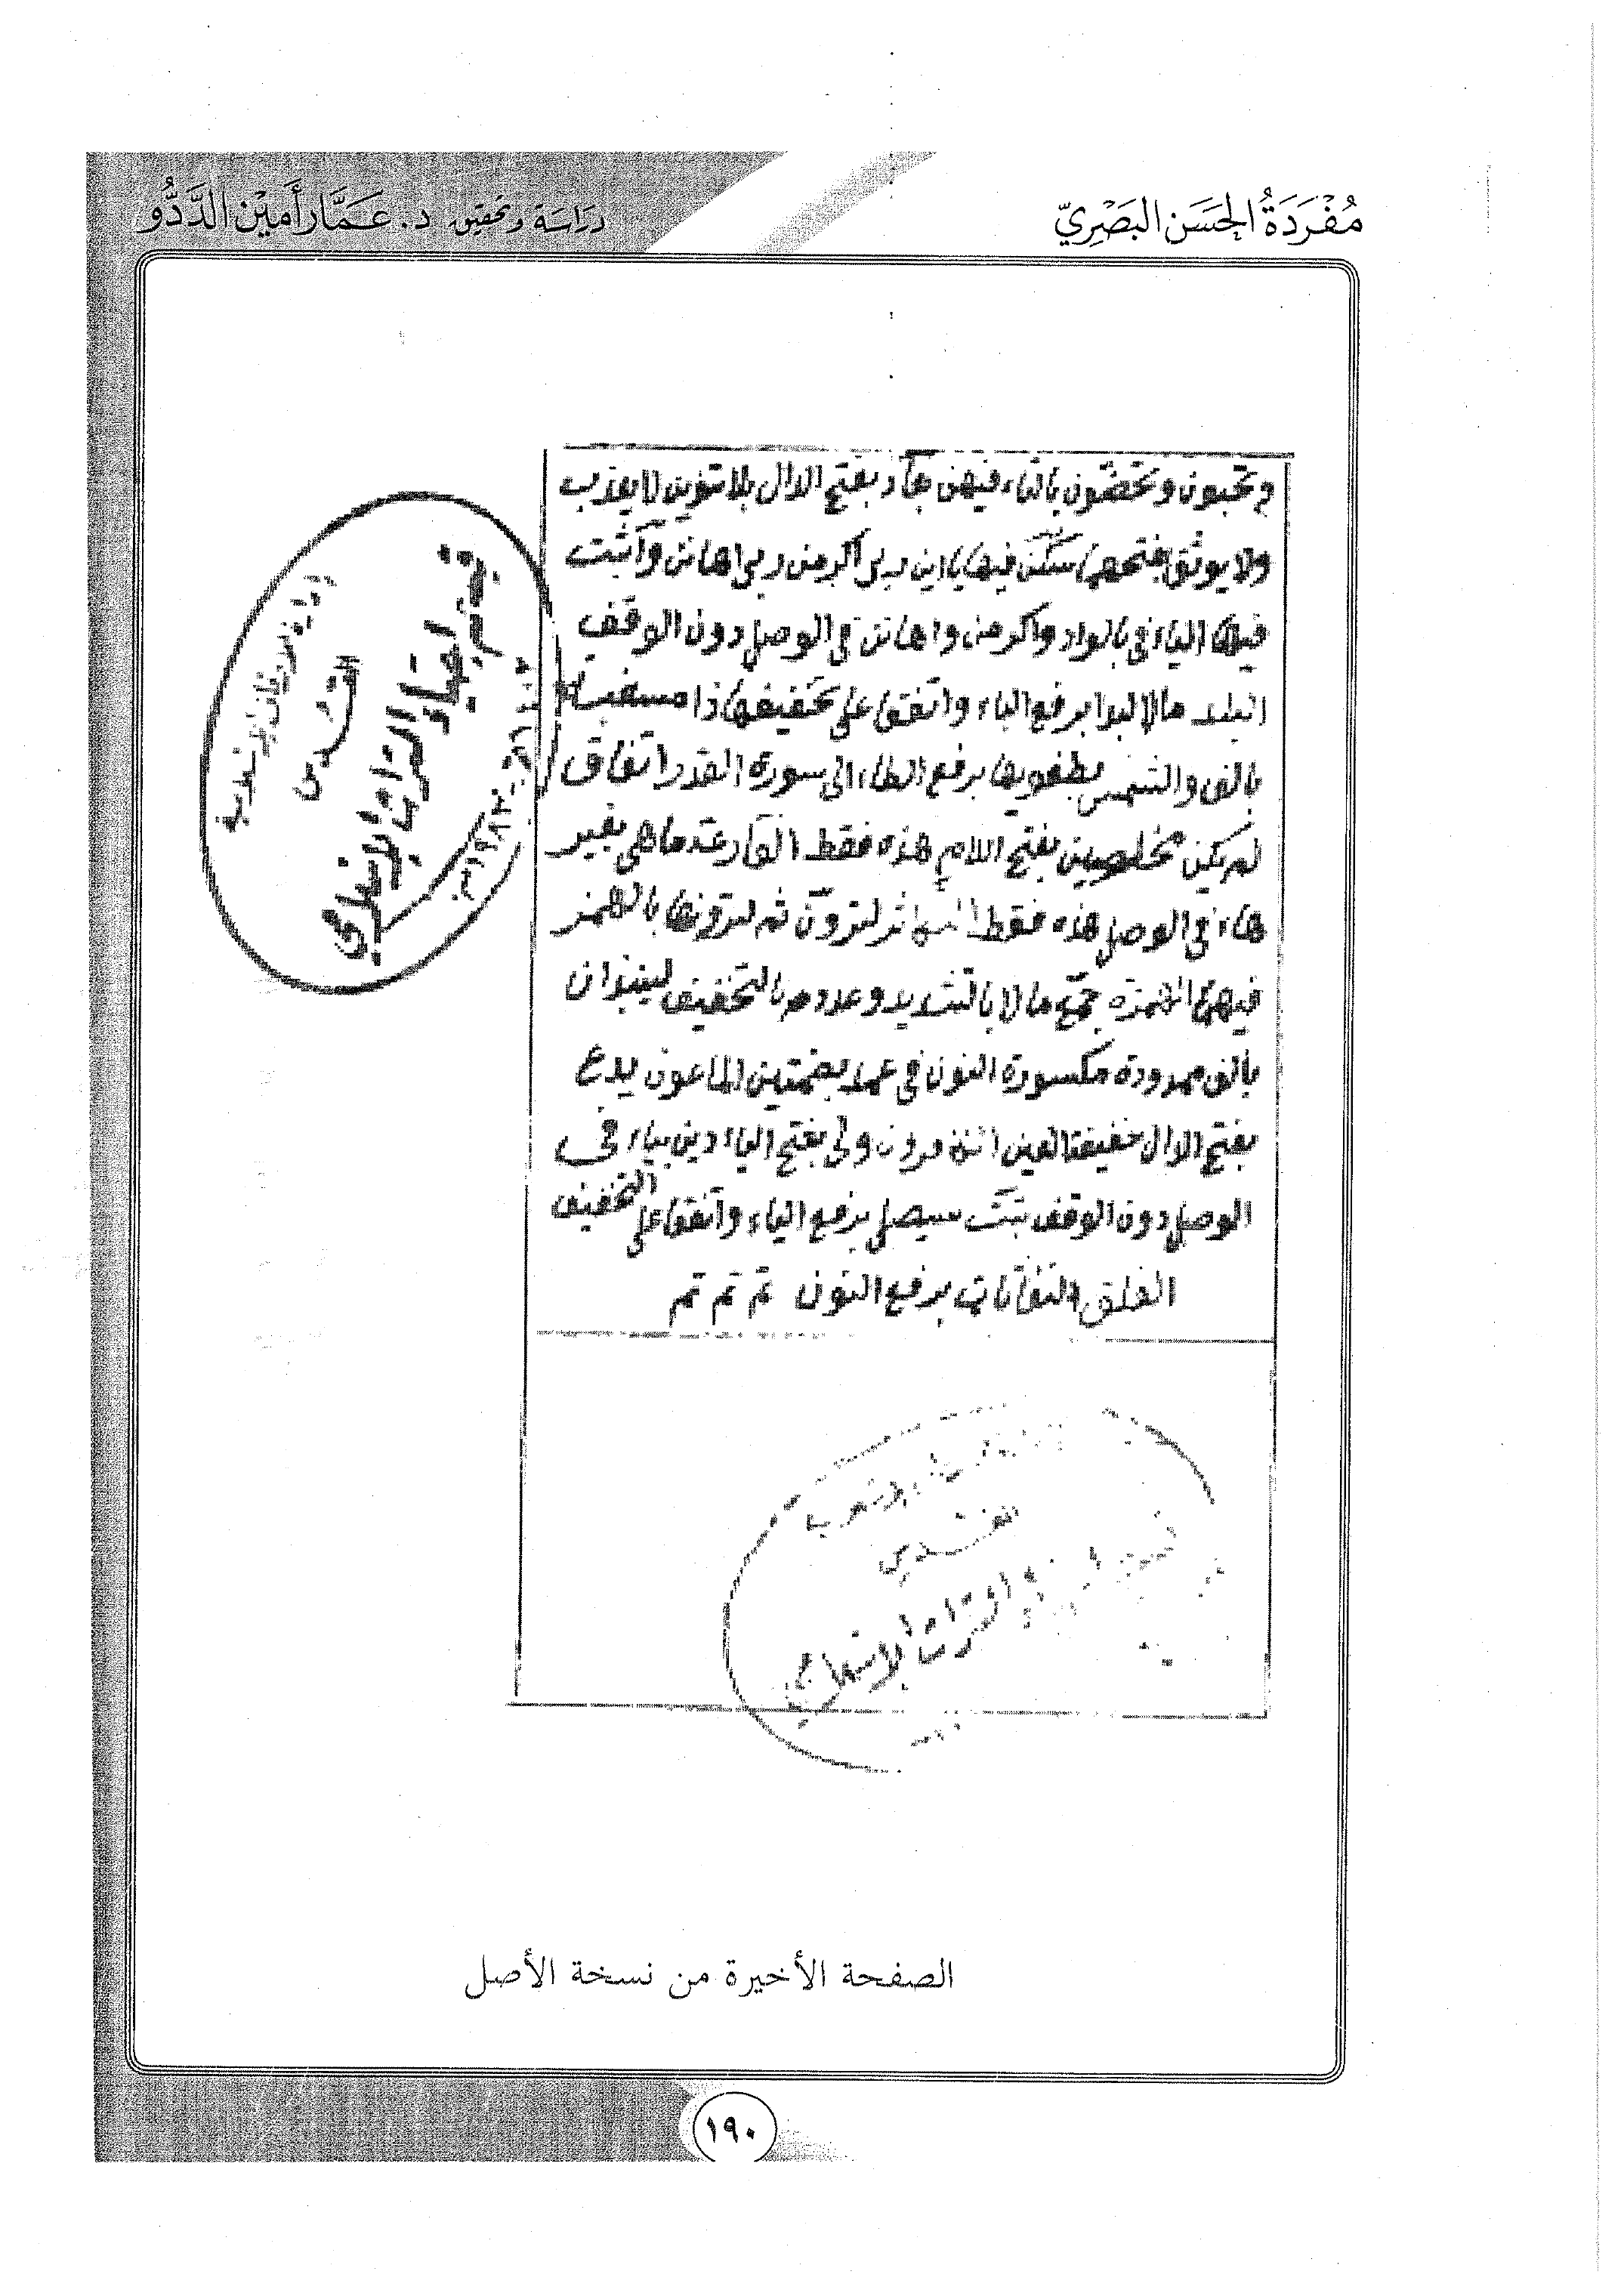 مُفْرَدَةُ الحَسَن البَصْرِيّ
دراسَة وتحقيق د. عَمَّار أَمِيْن الدَّدُّو
وتحبون وتحضون بالتاء فيهن بعاد بفتح الدال بلا تنوين لا يعذب
ولا يوثق بفتحهما سكن فيها يا اين ربى اكرمن ربى اهانن وأثبت
فيها الياء في بالواد واكرمن واهانن في الوصل دون الوقف
البلد مالا لبدا برفع الباء واتفقا على تخفيفها ذا مسغبة
بالف والشمس بطغويها برفع الطاء الى سورة القدر اتفاق
لم يكن مخلصين بفتح اللام هذه فقط القارعة ما هي بغير
هاء في الوصل هذه فقط التكاثر لترون ثم لترونها بالهمز
فيهما الهمزة جمع مالا بالتشديد وعدده بالتخفيف لينبذان
بالف ممدودة مكسورة النون في عمد بضمتين الماعون يدع
بفتح الدال خفيفة العين الكافرون ولى بفتح الياء دين بياء في
الوصل دون الوقف تبت سيصلى برفع الياء واتفقا على التخفيف
الفلق النفاثات برفع النون تم تم تم
القدس
قسم احياء التراث الإسلامي
القدس
التراث الإسلامي
الصفحة الأخيرة من نسخة الأصل
١٩٠